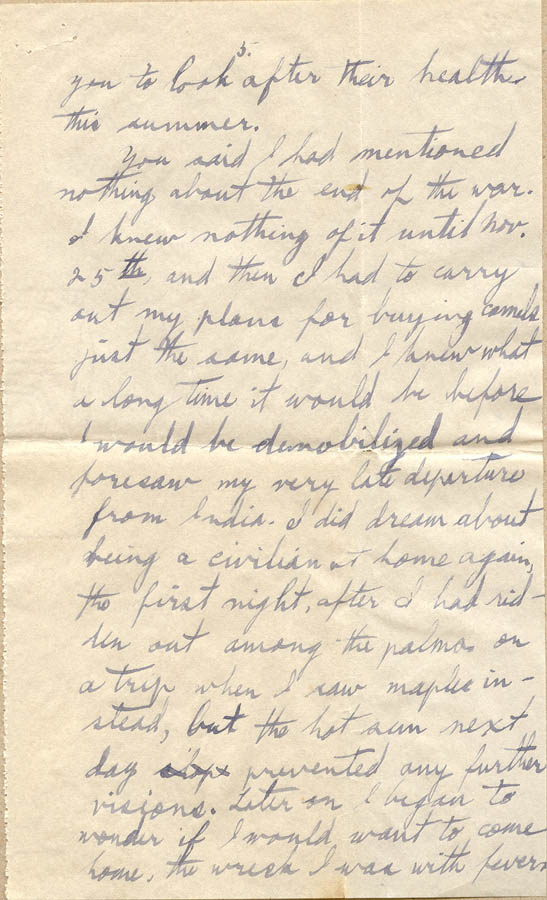 5.
you to look after their health
this summer.
You said I had mentioned
nothing about the end of the war.
I knew nothing of it until Nov.
25th, and then I had to carry
out my plans for buying camels
just the same, and I knew what
a long time it would be before
I would be demobilized and
foresaw my very late departure
from India. I did dream about
being a civilian at home again,
the first night, after I had rid-
den out among the palms on
a trip when I saw maples in-
stead, but the hot sun next
day prevented any further
visions. Later on I began to
wonder if I would want to come
home, the wreck I was with fever